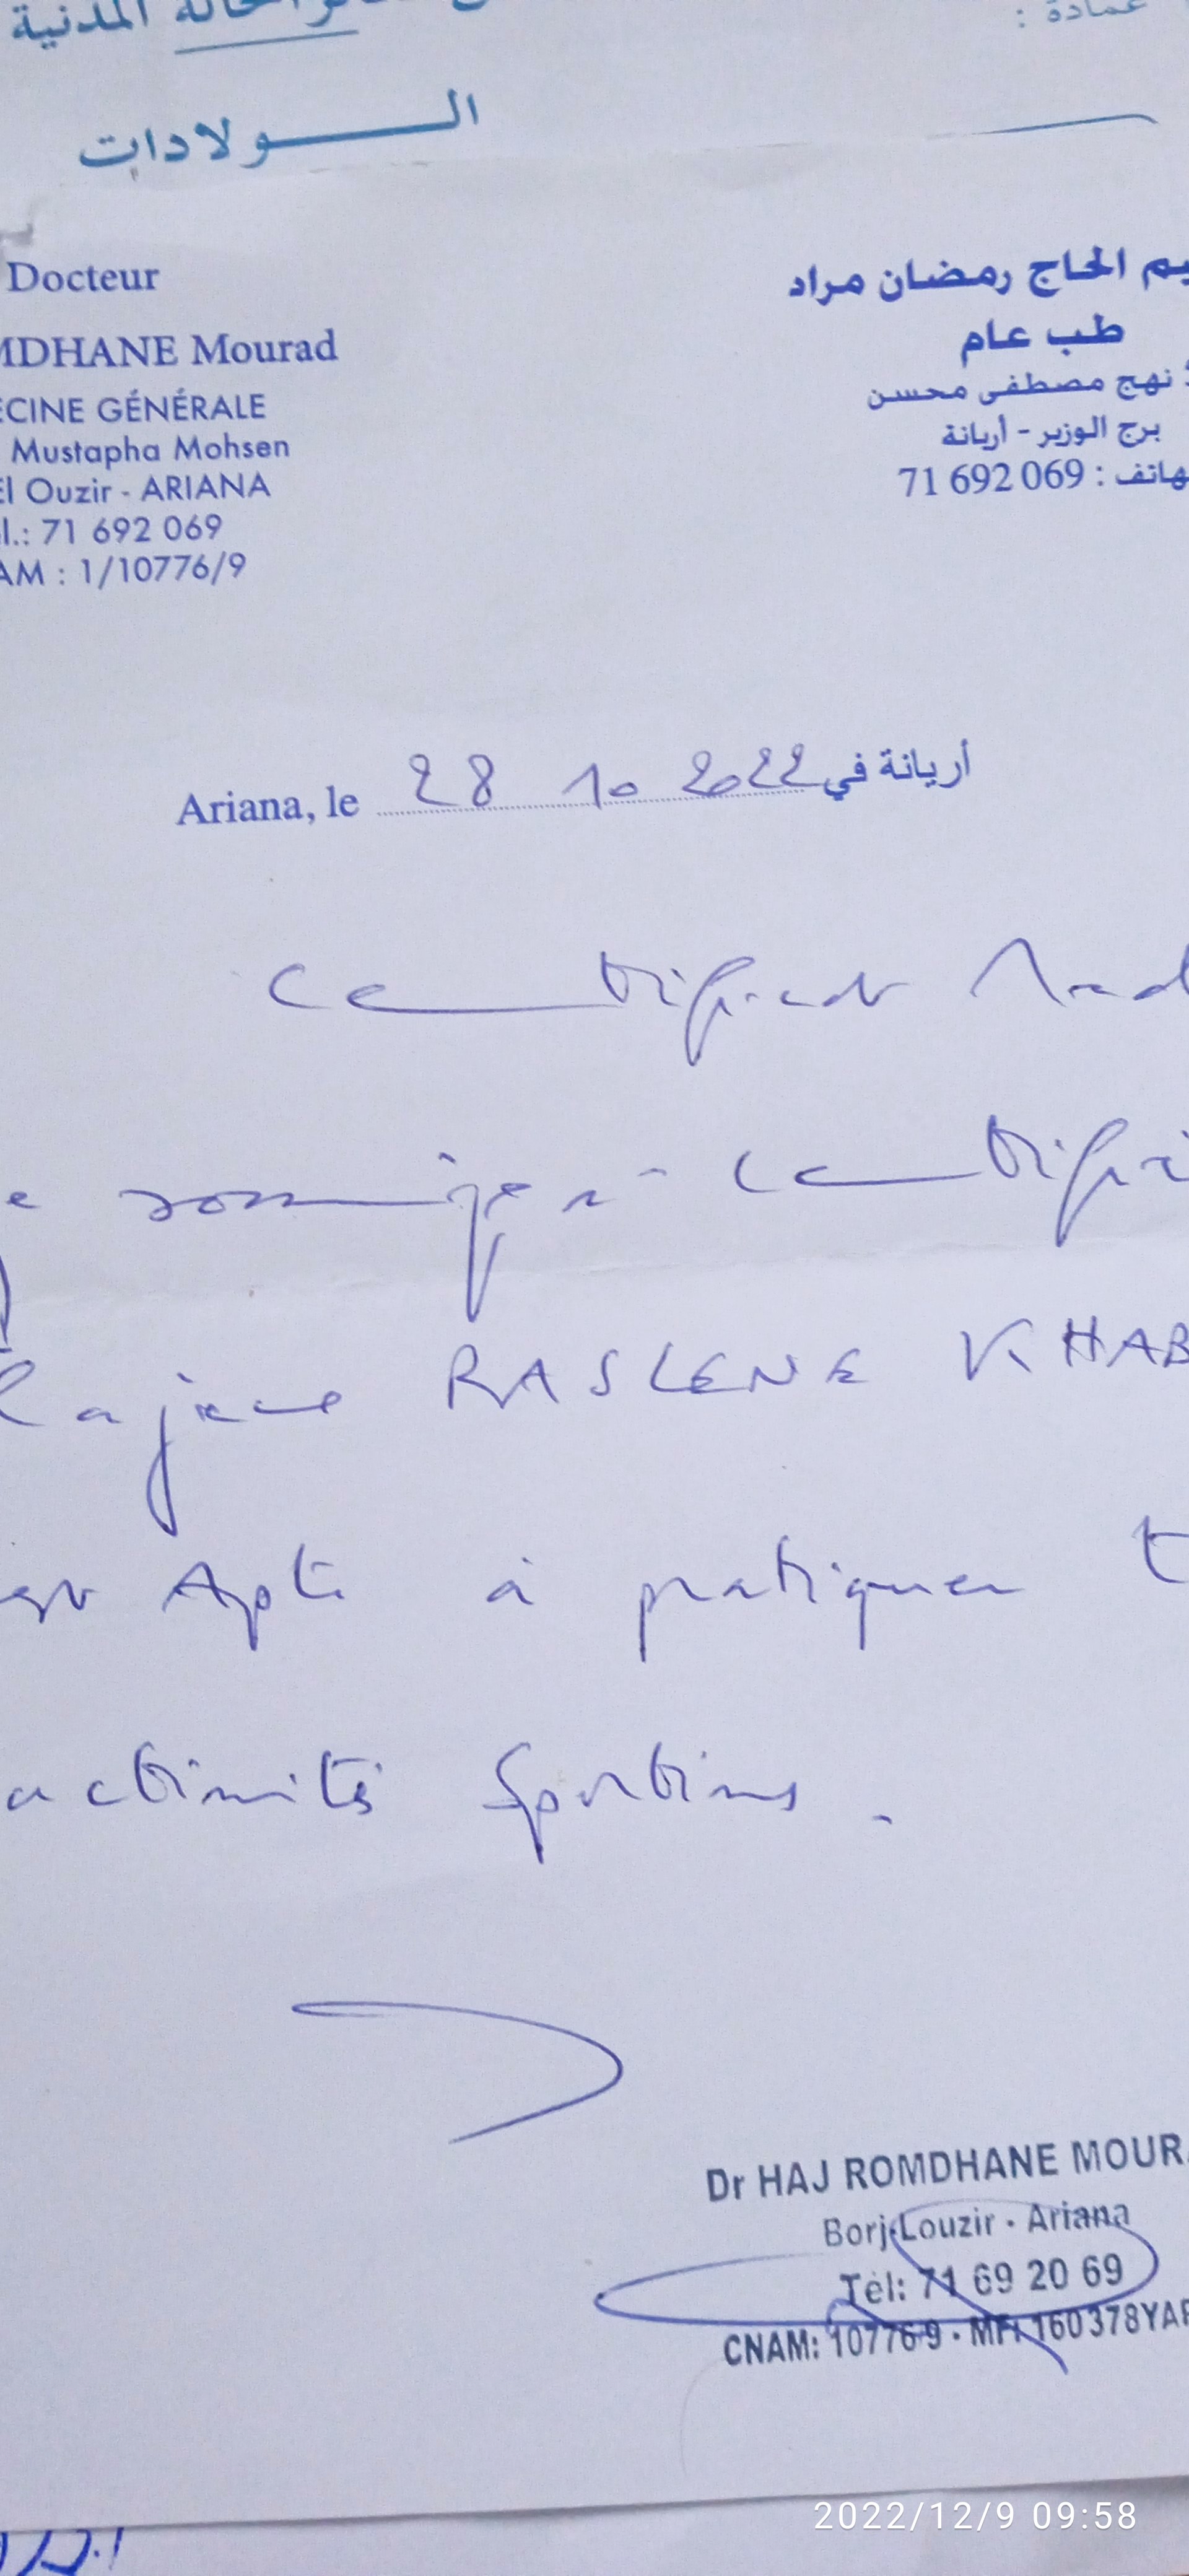 الحالة المدنية
عمادة :
الـــولادات
Docteur
MDHANE Mourad
ECINE GÉNÉRALE
Mustapha Mohsen
El Ouzir - ARIANA
l.: 71 692 069
AM : 1/10776/9
يم الحاج رمضان مراد
طب عام
نهج مصطفى محسن
برج الوزير - أريانة
هاتف : 71 692 069
Ariana, le 28 10 2022 أريانة في
Certificat Méd
e soussigné certifie
la jeune RASLENE KHAB
est Apte à pratiquer t
activités sportives.
Dr HAJ ROMDHANE MOURA
Borj Louzir - Ariana
Tél: 71 69 20 69
CNAM: 10776-9 - MF: 160378YAP
2022/12/9 09:58